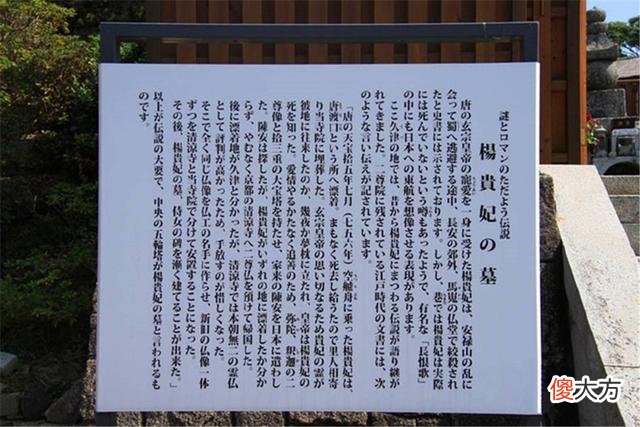 謎とロマンのただよう伝説
楊貴妃の墓
唐の玄宗皇帝の寵愛を一身に受けた楊貴妃は、安禄山の乱に
会って蜀へ逃避する途中、長安の郊外、馬嵬の仏堂で絞殺され
たと史書には示されております。しかし、巷では楊貴妃は実際
には死んでいないという噂もあったようで、有名な「長恨歌」
の中にも日本への東航を想像させる表現があります。
ここ久津の地では、昔から楊貴妃にまつわる伝説が語り継が
れてきました。二尊院に残されている江戸時代の文書には、次
のような言い伝えが記されています。
「唐の天宝拾五年七月(七五六年)空艫舟に乗った楊貴妃は、
唐渡口という所へ漂着、まもなく死去し給うたので里人相寄
り当寺院に埋葬した。玄宗皇帝の思い切なるため貴妃の霊が
彼地に往来したのか、幾夜か夢枕に立たれ、皇帝は楊貴妃の
死を知った。愛情やるかたなく追善のため、弥陀、釈迦の二
尊像と拾三重の大宝塔を持たせ、家来の陳安を日本に遣わし
た。陳安は探したが、楊貴妃がいずれの地に漂着したか分か
らず、やむなく京都の清凉寺へ二尊仏を預けて帰国した。
後に漂着地が久津と分かったが、清凉寺では本朝無二の霊仏
として評判が高かったため、手放すのが惜しくなった。
そこで全く同じ仏像を仏工の名手に作らせ、新旧の仏像一体
ずつを清凉寺と当寺院で分けて安置することになった。
その後、楊貴妃の墓、侍女の碑を漸く建てることが出来た。」
以上が伝説の大要で、中央の五輪塔が楊貴妃の墓と言われるも
のです。
傻大方